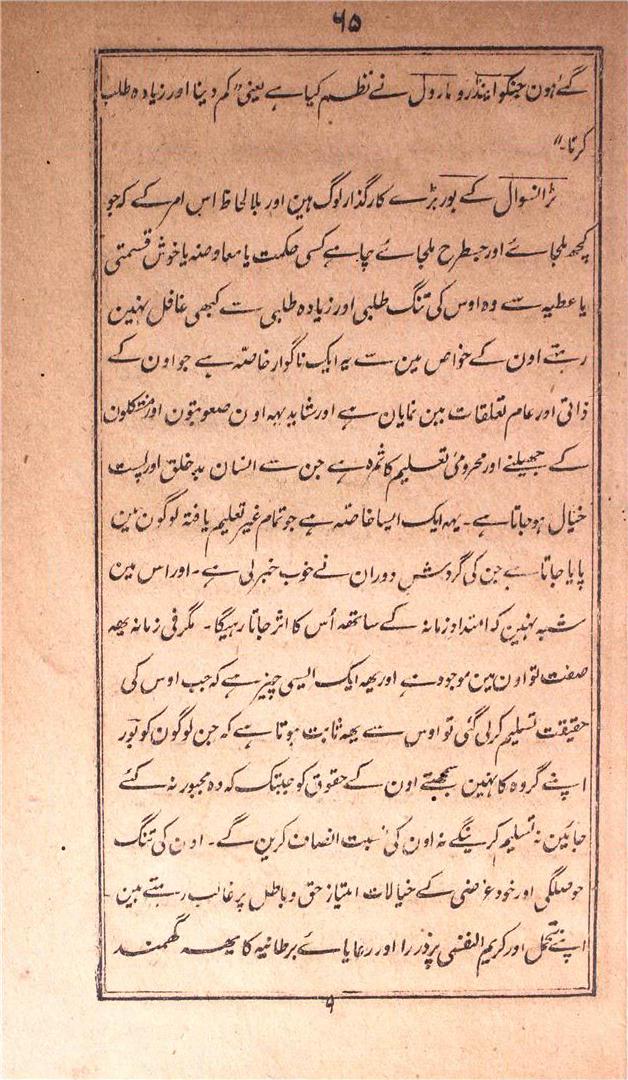 ۶۵
گئے ہون جنکو اینڈرو مارول نے نظم کیا ہے یعنی "کم دینا اور زیادہ طلب
کرنا۔"
ٹرانسوال کے بور بڑے کارگذار لوگ ہین اور بلا لحاظ اس امر کے کہ جو
کچھ ملجائے اور جسطرح ملجائے چاہے کسی حکمت یا معاوضہ یا خوش قسمتی
یا عطیہ سے وہ اوس کی تنگ طلبی اور زیادہ طلبی سے کبھی غافل نہین
رہتے اون کے خواص مین سے یہ ایک ناگوار خاصّہ ہے جو اون کے
ذاتی اور عام تعلقات مین نمایان ہے اور شاید یہہ اون صعوبتون اور مشکلون
کے جھیلنے اور محرومیٔ تعلیم کا ثمرہ ہے جن سے انسان بد خلق اور پست
خیال ہو جاتا ہے۔ یہہ ایک ایسا خاصّہ ہے جو تمام غیر تعلیم یافتہ لوگون مین
پایا جاتا ہے جن کی گردش دوران نے خوب خبر لی ہے۔ اور اس مین
شبہ نہین کہ امتداد زمانہ کے ساتھہ اُس کا اثر جاتا رہیگا۔ مگر فی زمانہ یھہ
صفت تو اون مین موجود ہے اور یھہ ایک ایسی چیز ہے کہ جب اوس کی
حقیقت تسلیم کر لی گئی تو اوس سے یھہ ثابت ہوتا ہے کہ جن لوگون کو بور
اپنے گروہ کا نہین سمجھتے اون کے حقوق کو جبتک کہ وہ مجبور نہ کئے
جائین نہ تسلیم کرینگے نہ اون کی نسبت انصاف کرین گے۔ اون کی تنگ
حوصلگی اور خود غرضی کے خیالات امتیاز حق و باطل پر غالب رہتے ہین
اپنے تحمل اور کریم النفسی پر ذرا اور رعایائے برطانیہ کا یھہ گھمنڈ
۹